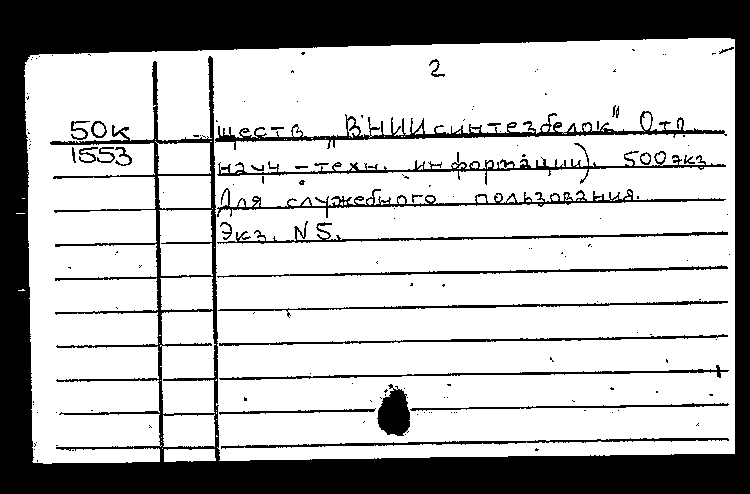 2
50к
1553
ществ „ВНИИсинтезбелок" Отд.
науч-техн. информации). 500экз.
Для служебного пользования.
Экз. N5.